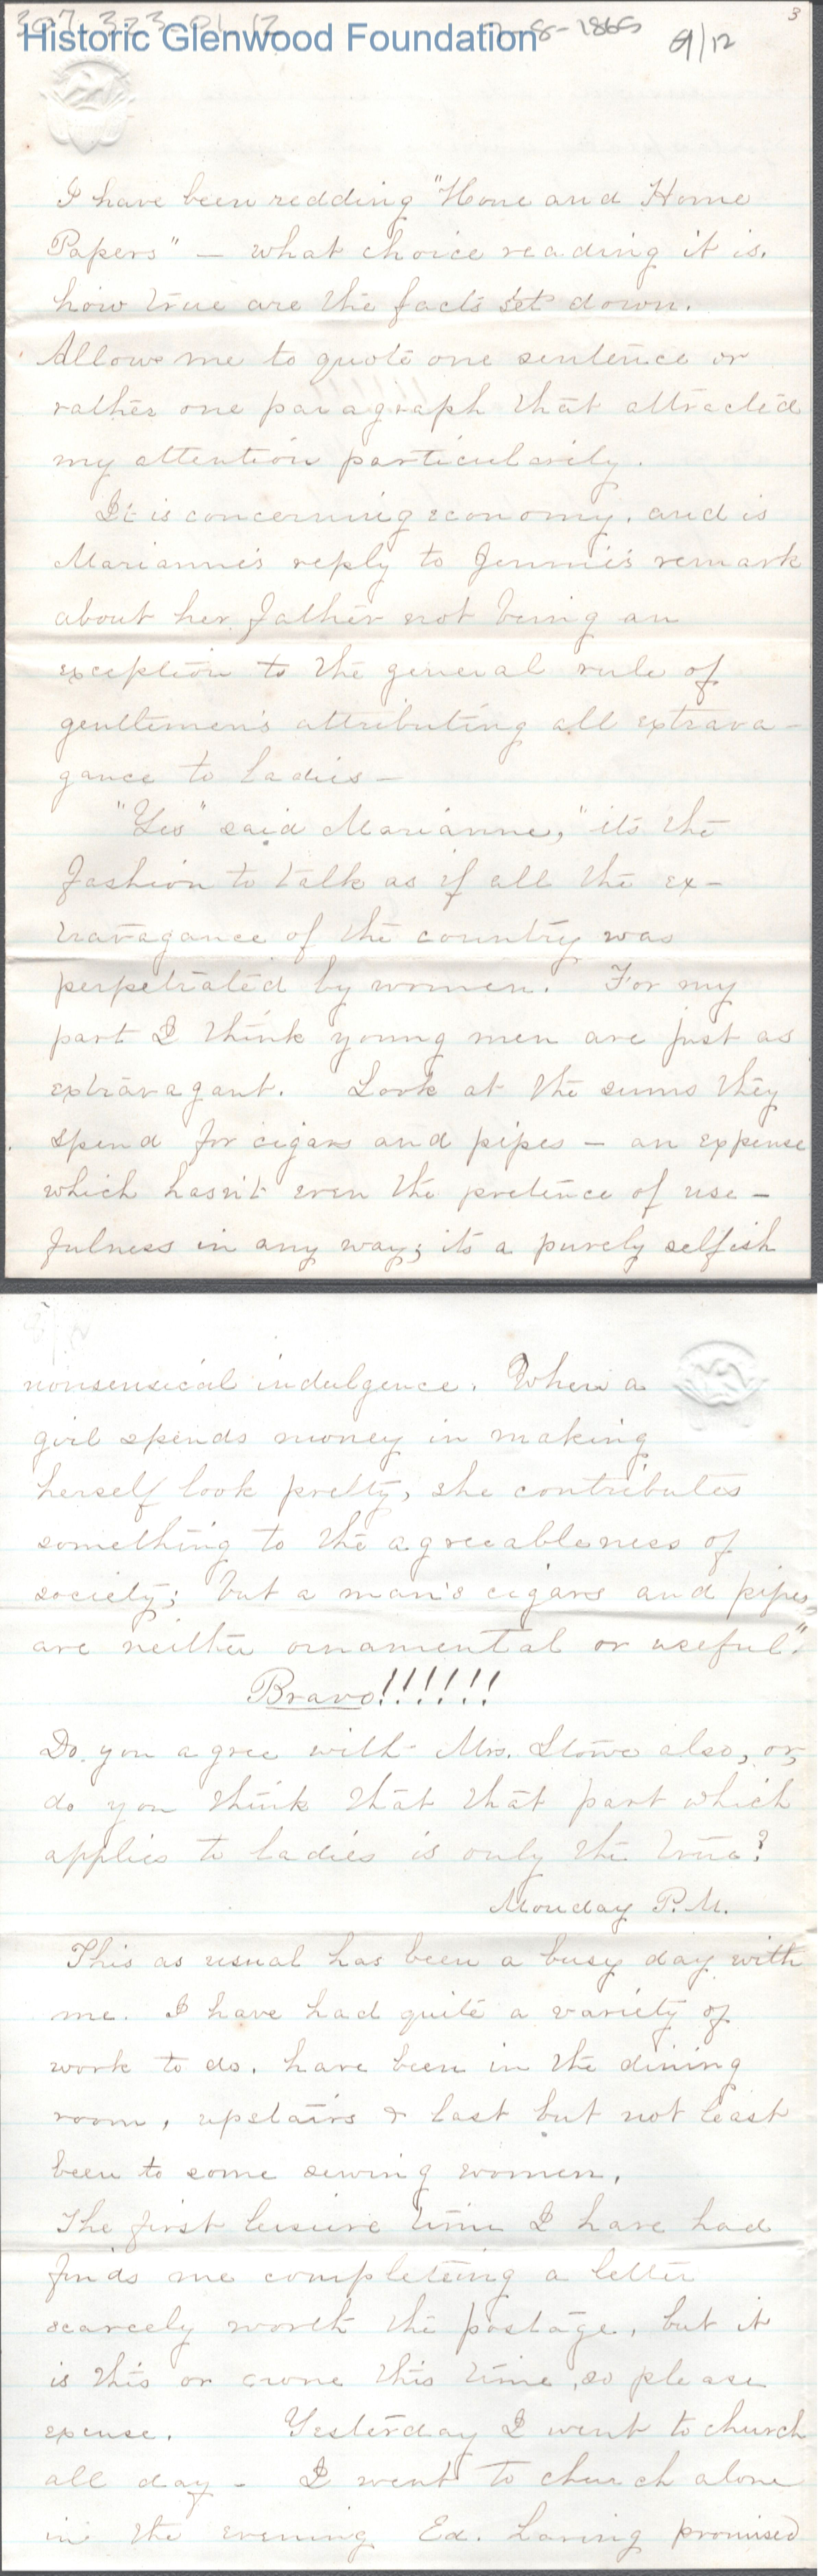 3
307.323.01.12
Historic Glenwood Foundation
-8-1865
9/12
I have been redding "Hone and Home
Papers" — what choice reading it is,
how true are the facts set down.
Allow me to quote one sentence or
rather one paragraph that attracted
my attention particularily.
It is concerning economy, and is
Marianne's reply to Jennie's remark
about her father not being an
exception to the general rule of
gentlemen's attributing all extrava-
gance to ladies —
"Yes" said Marianne, "its the
fashion to talk as if all the ex-
travagance of the country was
perpetrated by women. For my
part I think young men are just as
extravagant. Look at the sums they
spend for cigars and pipes — an expense
which hasn't even the pretence of use-
fulness in any way; its a purely selfish
nonsensical indulgence. When a
girl spends money in making
herself look pretty, she contributes
something to the agreeableness of
society; but a man's cigars and pipes,
are neither ornamental or useful".
Bravo!!!!!!
Do you agree with Mrs. Stowe also, or,
do you think that that part which
applies to ladies is only the true?
Monday P.M.
This as usual has been a busy day with
me. I have had quite a variety of
work to do, have been in the dining
room, upstairs & last but not least
been to some sewing women.
The first leisure time I have had
finds me completeing a letter
scarcely worth the postage, but it
is this or none this time, so please
excuse. Yesterday I went to church
all day - I went to church alone
in the evening Ed. Loring promised